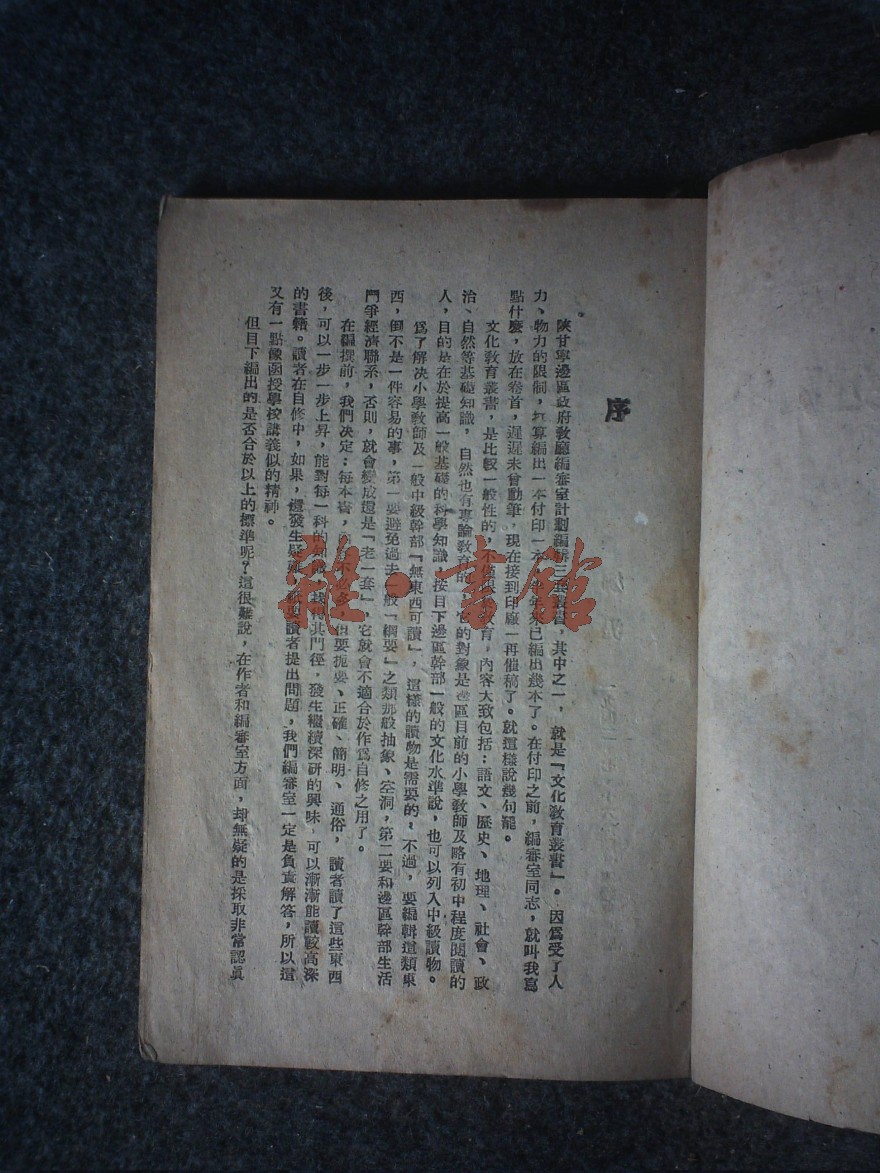 序
陝甘寧邊區政府教廳編審室計劃編輯三套叢書，其中之一，就是『文化敎育叢書』。因爲受了人
力、物力的限制，打算編出一本付印一本，半年來已編出幾本了。在付印之前，編審室同志，就叫我寫
點什麼，放在卷首，遲遲未曾動筆，現在接到印廠一再催稿了。就這樣說幾句罷。
文化敎育叢書，是比較一般性的，不僅限於敎育，內容大致包括：語文、歷史、地理、社會、政
治、自然等基礎知識，自然也有專論敎育的，它的對象是邊區目前的小學敎師及略有初中程度閱讀的
人，目的是在於提高一般基礎的科學知識，按目下邊區幹部一般的文化水準說，也可以列入中級讀物。
爲了解决小學敎師及一般中級幹部『無東西可讀』，這樣的讀物是需要的，不過，要編輯這類東
西，倒不是一件容易的事，第一要避免過去一般『綱要』之類那般抽象、空洞，第二要和邊區幹部生活
鬥爭經濟聯系，否則，就會變成還是『老一套』，它就會不適合於作爲自修之用了。
在編撰前，我們决定：每本書，內容不要多，但要扼要、正確、簡明、通俗，讀者讀了這些東西
後，可以一步一步上昇，能對每一科的知識，找得其門徑，發生繼續深研的興味，可以漸漸能讀較高深
的書籍。讀者在自修中，如果，還發生疑難，祇要讀者提出問題，我們編審室一定是負責解答，所以這
又有一點像函授學校講義似的精神。
但目下編出的是否合於以上的標準呢？這很難說，在作者和編審室方面，却無疑的是採取非常認眞
雜·書館